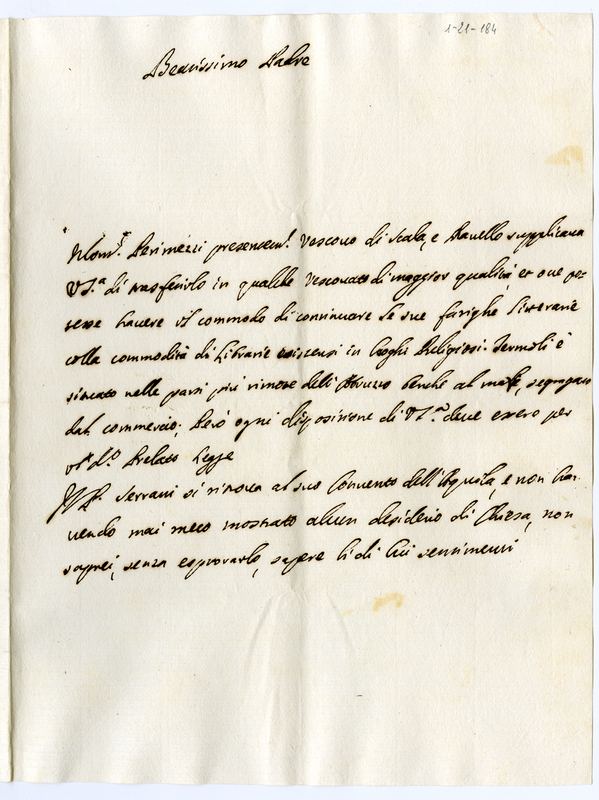 1-21-184
Beatissimo Padre
Mons.r Perimezzi presentem.te Vescovo di Scala, e Ravello supplicava
V.S.a di trasferirlo in qualche Vescovato di maggior qualità, et ove po-
tesse havere il commodo di continuare le sue fatighe litterarie
colla commodità di Librarie esistenti in luoghi Religiosi. Termoli è
situato nelle parti più rimote dell'Abruzzo benchè al mare, segregato
dal commercio; Però ogni disposizione di V.S.a deve essere per
il d.o Prelato legge
Il P. Serrani si ritrova al suo Convento dell'Aquila, e non ha-
vendo mai meco mostrato alcun desiderio di Chiesa, non
saprei, senza esprovarlo, sapere li di lui sentimenti